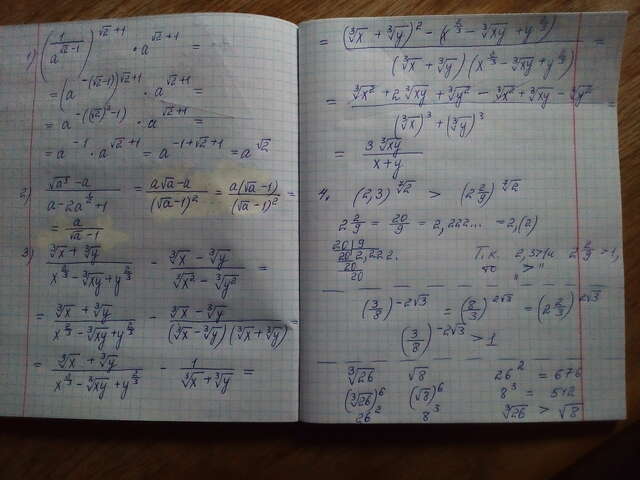 1) (1/a^(√2-1))^(√2+1) · a^(√2+1) =
= (a^(-(√2-1)))^(√2+1) · a^(√2+1) =
= a^(-((√2)²-1)) · a^(√2+1) =
= a^(-1) · a^(√2+1) = a^(-1+√2+1) = a^(√2)
2) (√a³ - a)/(a - 2a^(1/2) + 1) = (a√a - a)/(√a - 1)² = a(√a - 1)/(√a - 1)² =
= a/(√a - 1)
3) (∛x + ∛y)/(x^(2/3) - ∛xy + y^(2/3)) - (∛x - ∛y)/(∛x² - ∛y²) =
= (∛x + ∛y)/(x^(2/3) - ∛xy + y^(2/3)) - (∛x - ∛y)/((∛x - ∛y)(∛x + ∛y)) =
= (∛x + ∛y)/(x^(2/3) - ∛xy + y^(2/3)) - 1/(∛x + ∛y) =
= ((∛x + ∛y)² - (x^(2/3) - ∛xy + y^(2/3)))/((∛x + ∛y)(x^(2/3) - ∛xy + y^(2/3))) =
= (∛x² + 2∛xy + ∛y² - ∛x² + ∛xy - ∛y²)/((∛x)³ + (∛y)³) =
= 3∛xy/(x + y)
4. (2,3)^(√2) > (2 2/9)^(√2)
2 2/9 = 20/9 = 2,222... = 2,(2)
20 | 9
20 2,222.
20
20
Т.к. 2,3>1 и 2 2/9 > 1,
то " > "
(3/8)^(-2√3) = (8/3)^(2√3) = (2 2/3)^(2√3)
(3/8)^(-2√3) > 1
∛26 √8 26² = 676
(∛26)⁶ (√8)⁶ 8³ = 512
26² 8³ ∛26 > √8